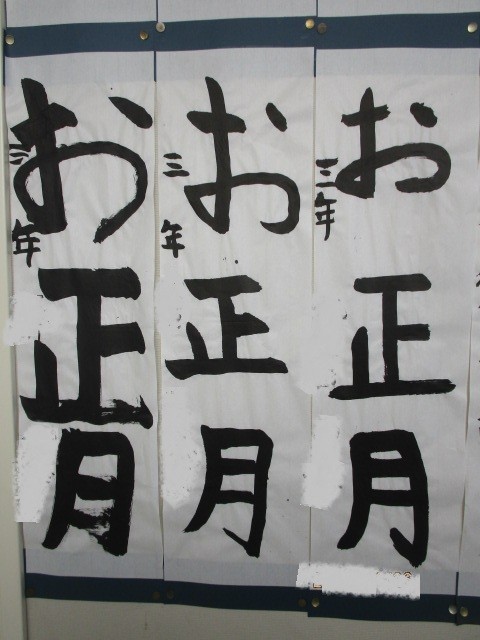 お正月
三年
お正月
三年
お正月
三年